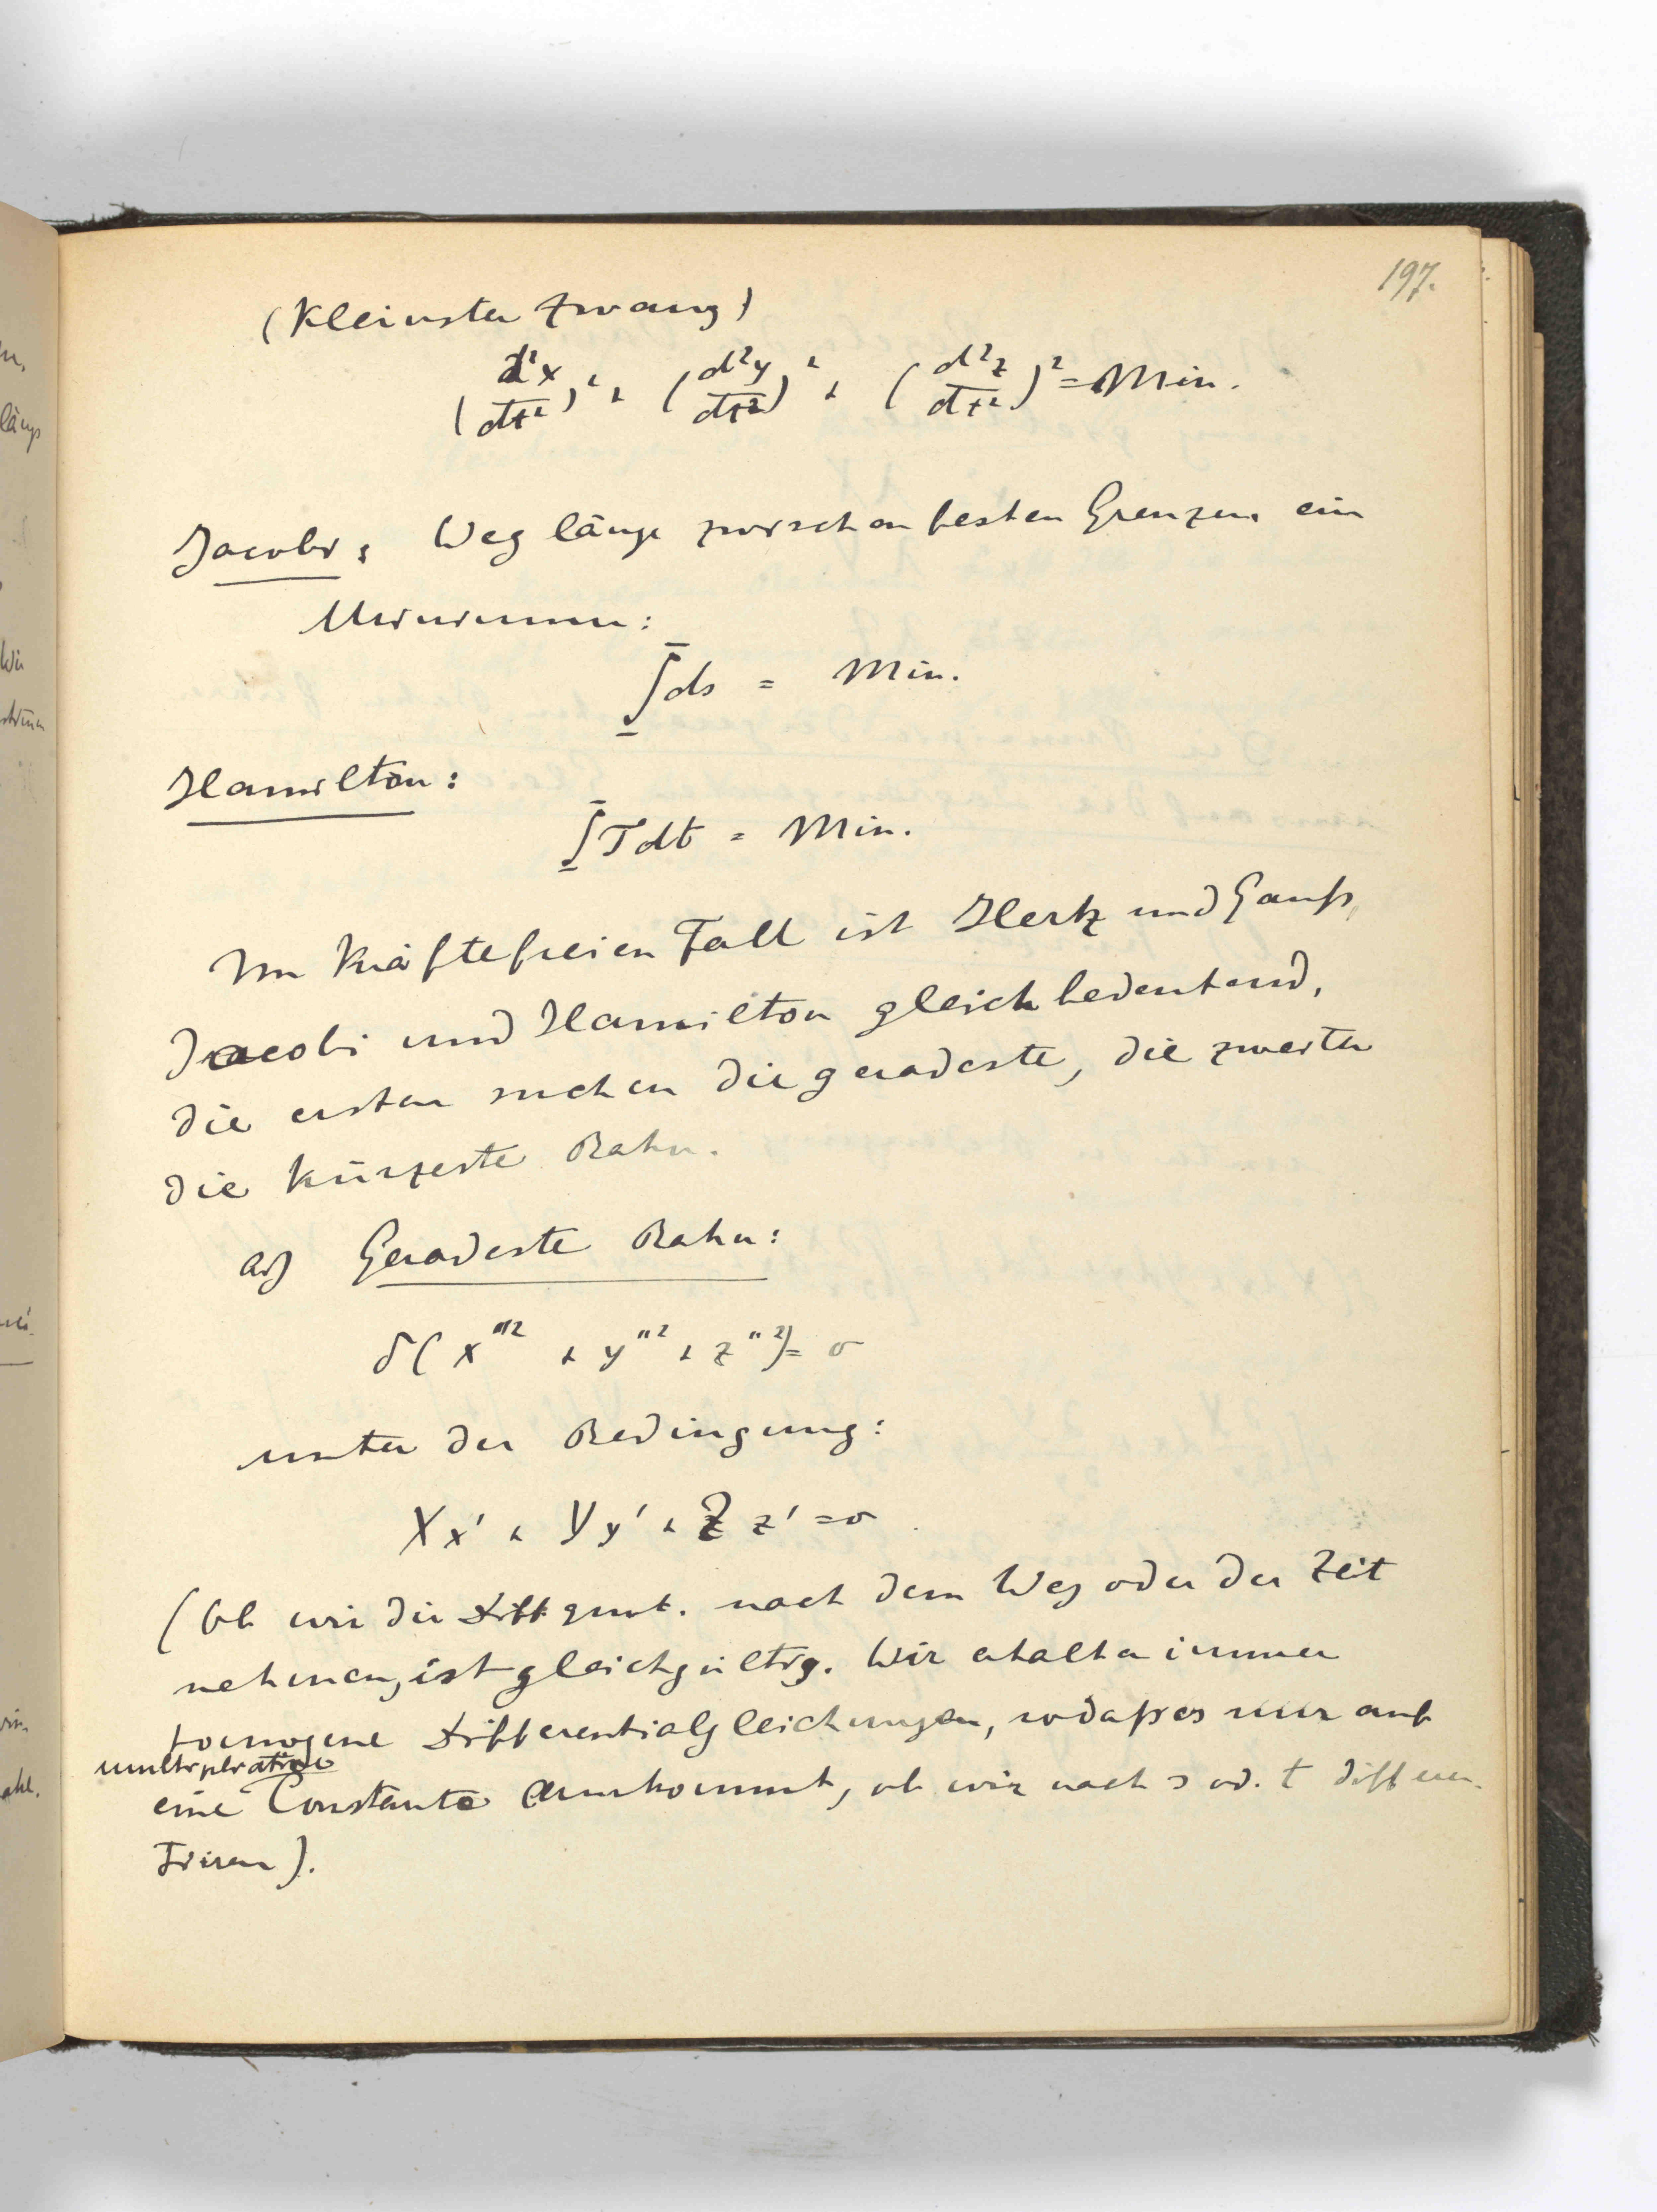 197.
(Kleinster Zwang)
(d²x/dt²)² + (d²y/dt²)² + (d²z/dt²)² = Min.
Jacobi: Weglänge zwischen festen Grenzen ein
Minimum:
∫ds = Min.
Hamilton:
∫Tdt = Min.
Im kräftefreien Fall ist Hertz und Gauß,
Jacobi und Hamilton gleichbedeutend,
die ersten suchen die geradeste, die zweiten
die kürzeste Bahn.
a) Geradeste Bahn:
δ(x''² + y''² + z''²) = 0
unter der Bedingung:
Xx' + Yy' + Zz' = 0
(Ob wir die Diffquot. nach dem Weg oder der Zeit
nehmen, ist gleichgültig. Wir erhalten immer
homogene Differentialgleichungen, sodaß es nur auf
multiplikative
eine Constante ankommt, ob wir nach s od. t differen-
tiiren).
längs
Wir